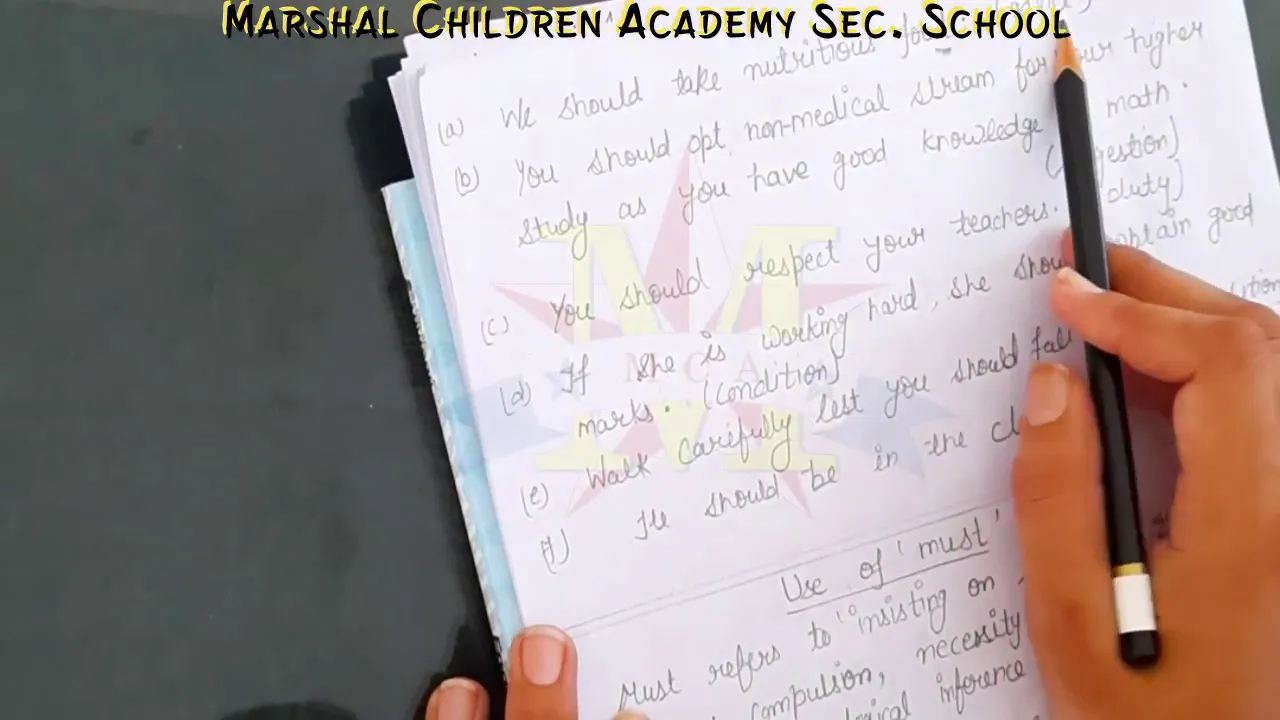 Marshal Children Academy Sec. School
(a) We should take nutritious
(b) You should opt non-medical stream for your higher
study as you have good knowledge math.
(c) You should respect your teachers. duty)
(d) If she is working hard, she should obtain good
marks. (condition)
(e) Walk carefully lest you should fall
(f) He should be in the
MCA
Use of 'must'
Must refers to insisting on
compulsion, necessity
inference